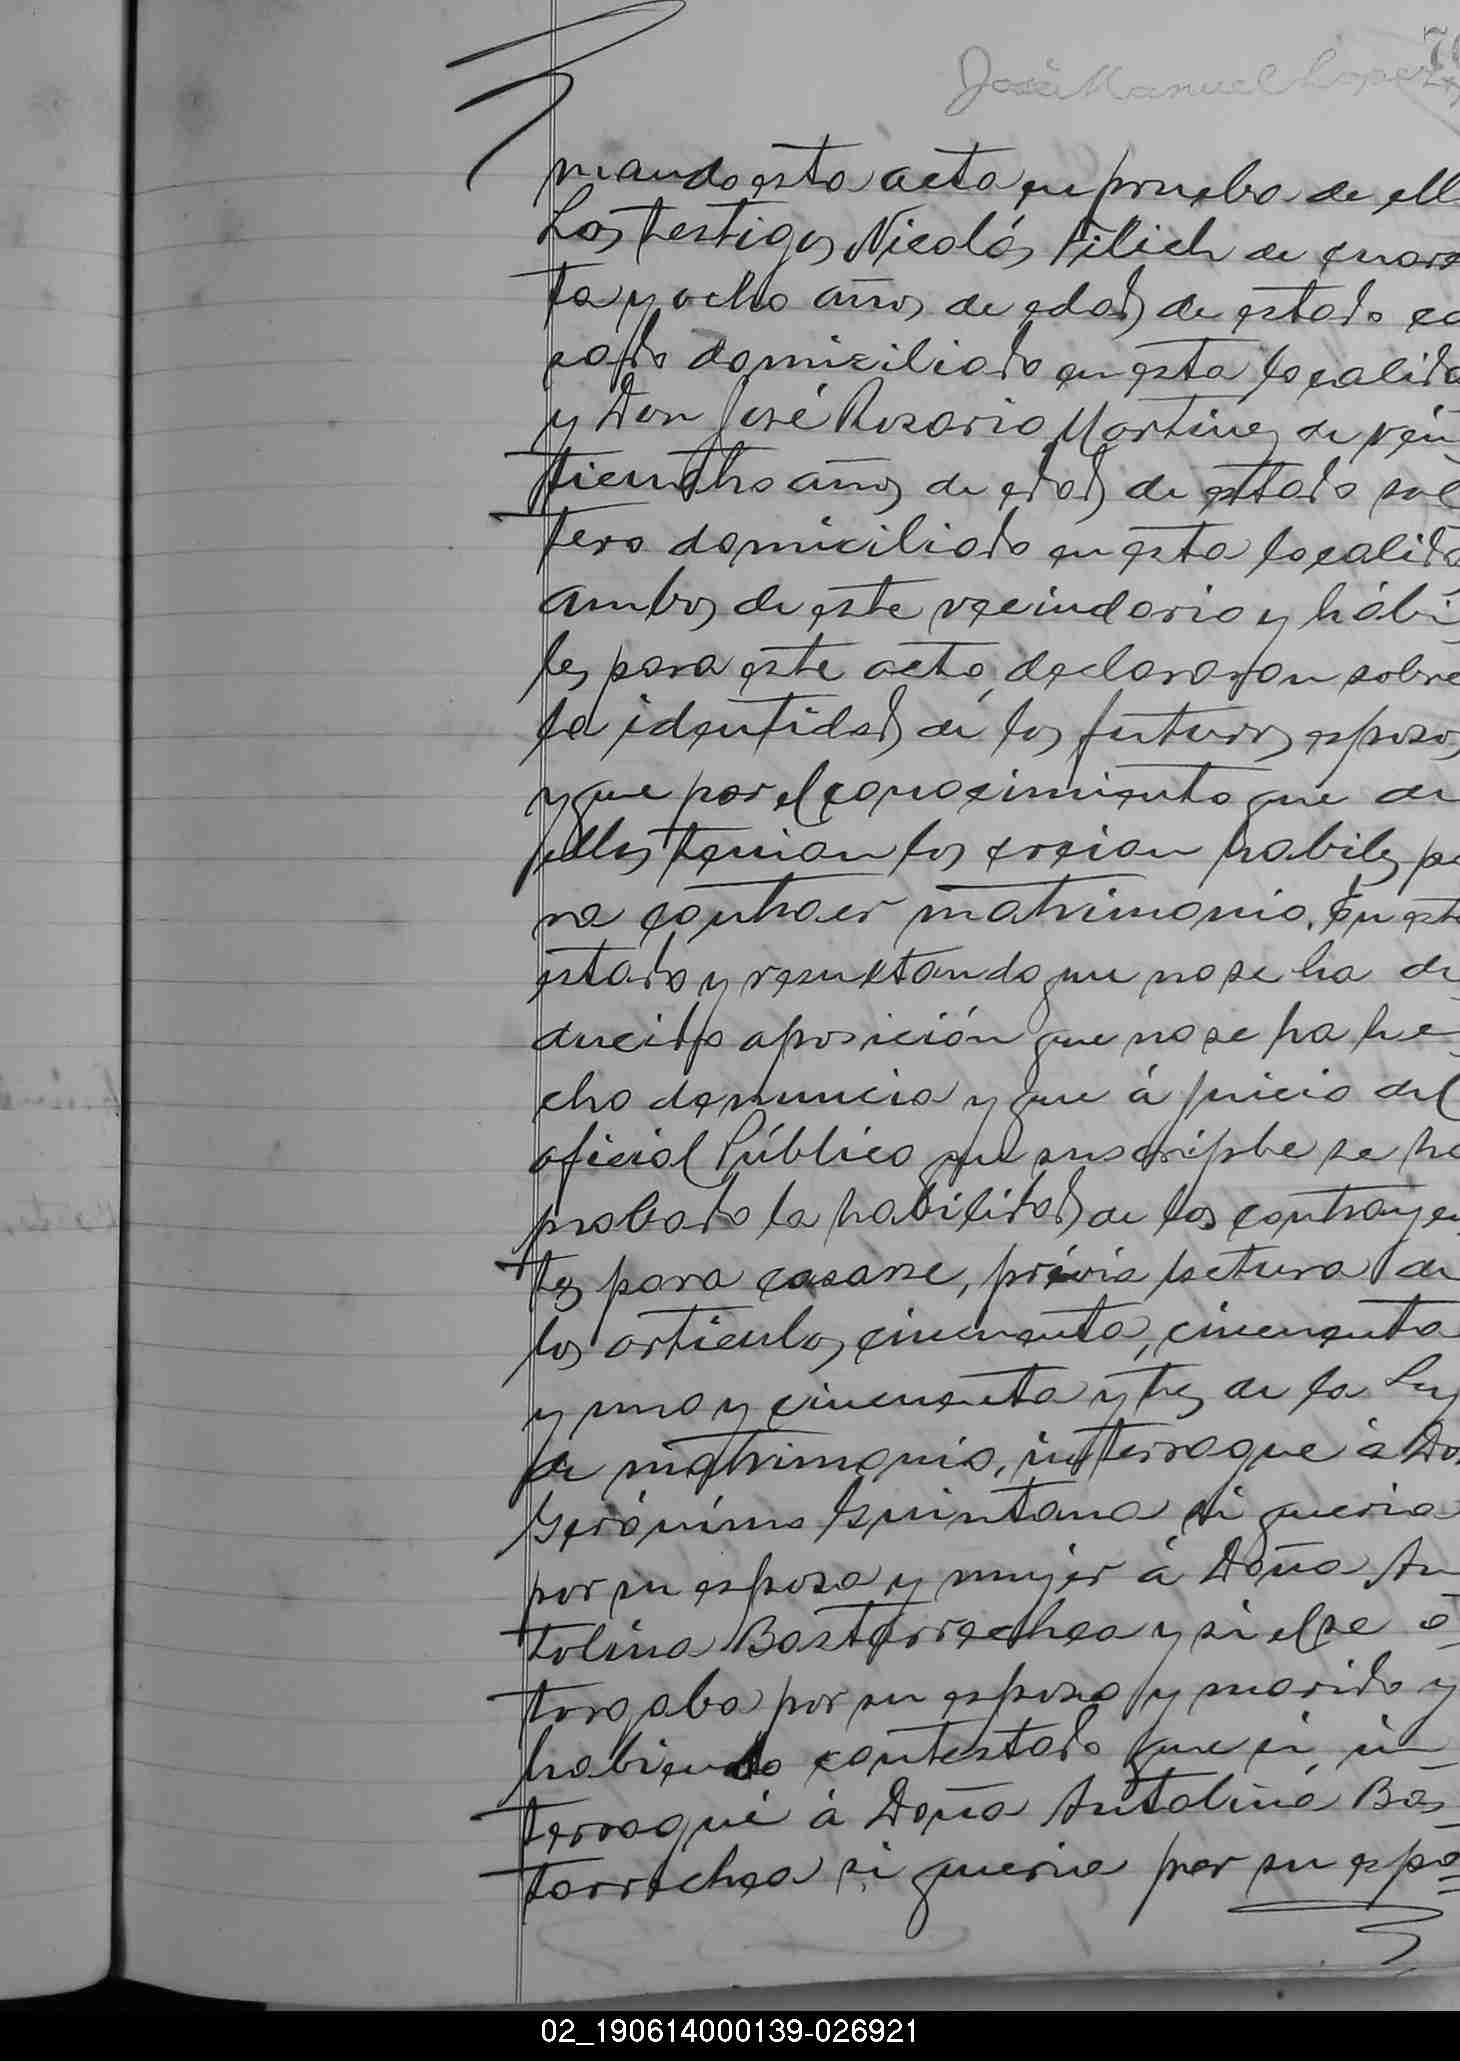 José Manuel Lopez
mando esta acta en prueba de ell
Los testigos Nicolás Filich de cuaren
ta y ocho años de edad de estado ca
sado domiciliado en esta localida
y Don José Rosario Martinez de véin
tiun años de edad de estado sol
tero domiciliado en esta localida
ambos de este vecindario y hábi
les para este acto, declararon sobre
la identidad de los futuros esposos
y que por el conocimiento que de
ellos tenian los creian habiles pa
ra contraer matrimonio. En este
estado y resultando que no se ha de
ducido oposición que no se ha he
cho denuncia y que á juicio del
oficial Público que suscripbe se ha
probado la habilidad de los contrayen
tes para casarse, prévia lectura de
los articulos cincuenta, cincuenta
y uno y cincuenta y tres de la Ley
de matrimonio, interrogue á Don
Gerónimo Guintana si queria
por su esposa y mujer á Doña An
tolina Bastarrechea y si el se o
torgaba por su esposo y marido y
habiendo contestado que si in
terrogué á Doña Antolina Bas
tarrechea si queria por su espo
02_190614000139-026921